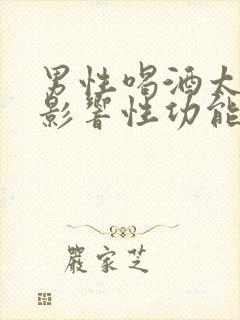 男性喝酒太
影響性功能
嚴家芝